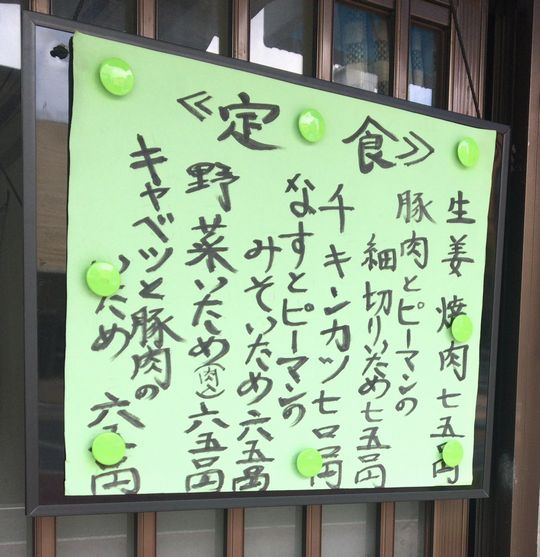 《定食》
生姜焼肉七五〇円
豚肉とピーマンの
細切りいため七五〇円
チキンカツ七〇〇円
なすとピーマンの
みそいため六五〇円
野菜いため(肉入)六五〇円
キャベツと豚肉の
いため 六五〇円